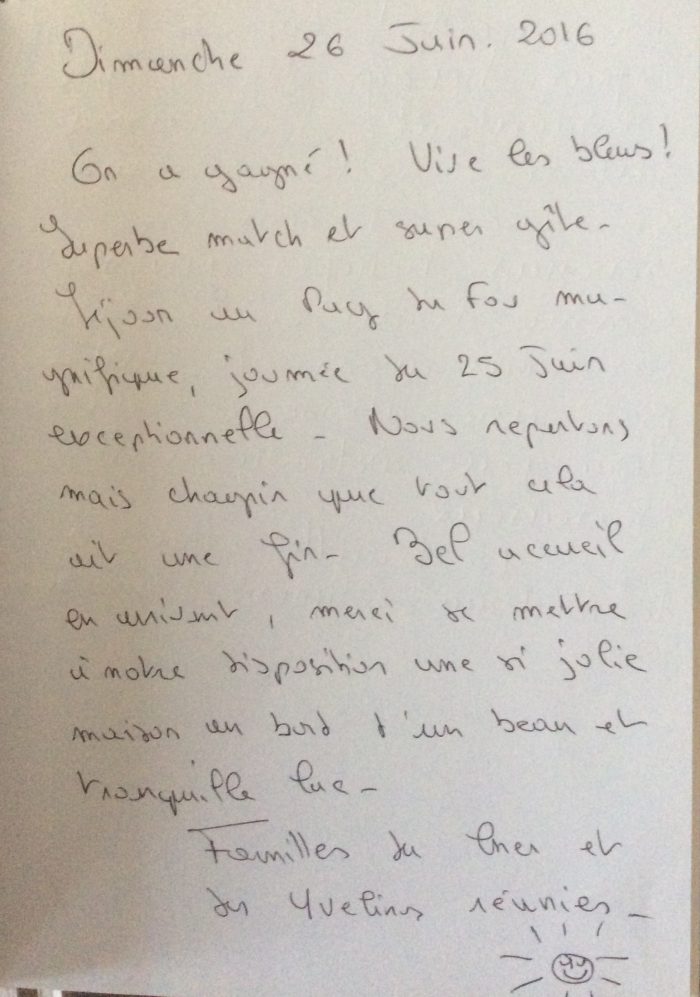 Dimanche 26 Juin. 2016
On a gagné ! Vive les bleus !
Superbe match et super gîte -
Séjour au Puy du Fou ma-
gnifique, journée du 25 Juin
exceptionnelle - Nous repartons
mais chagrin que tout cela
ait une fin - Bel accueil
en arrivant, merci de mettre
à notre disposition une si jolie
maison au bord d'un beau et
tranquille lac -
Familles du Cher et
des Yvelines réunies -